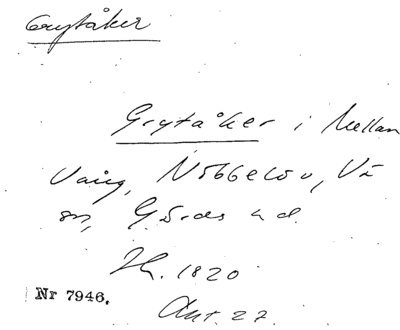 Grytåker
Grytåker i Mellan
Vång, Nöbbelöv, Vä
sn, Gärds hd.
1820
Nr 7946.
Akt. 27